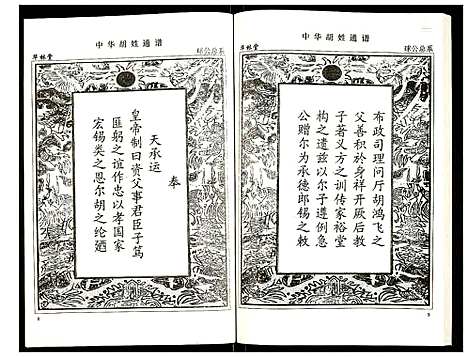 中华胡姓通谱
奉
天承运
皇帝制曰资父事君臣子笃
匪躬之谊作忠以孝国家
宏锡类之恩尔胡之纶廼
8
华林堂
中华胡姓通谱
球公总系
布政司理问厅胡鸿飞之
父善积於身祥开厥后教
子著义方之训传家裕堂
构之遗兹以尔子遵例急
公赠尔为承德郎锡之敕
9